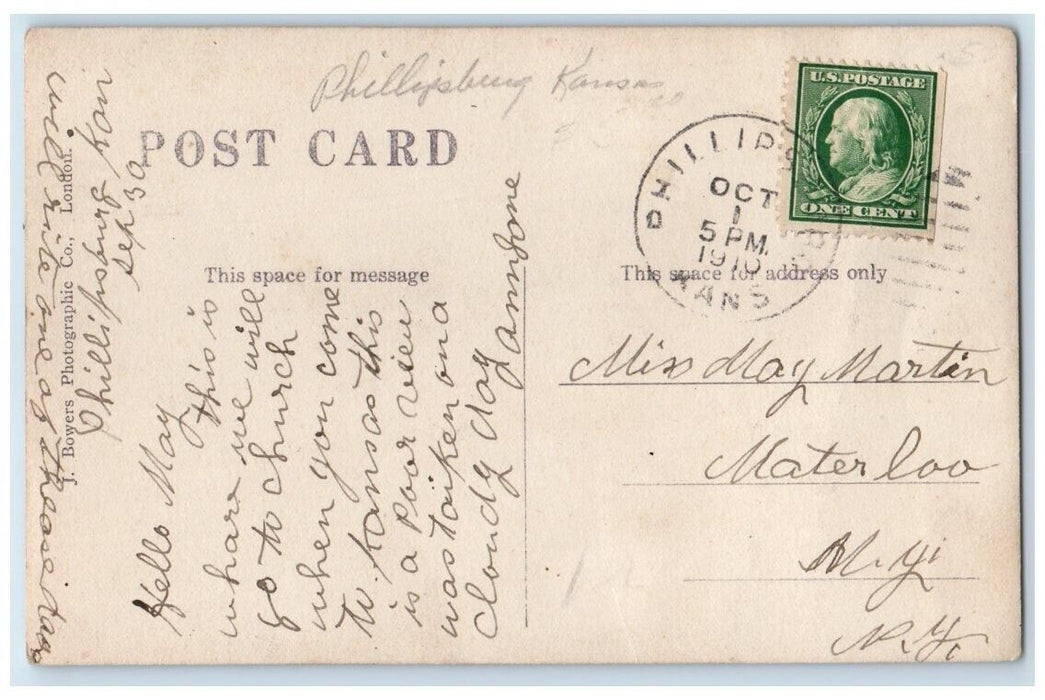 Phillipsburg Kansas
POST CARD
U.S. POSTAGE
ONE CENT
PHILLIPSB
OCT
1
5 PM
1910
KANS
This space for message
This space for address only
J. Bowers Photographic Co., London.
Phillipsburg Kan
Sep 30
Hello May
this is
whare we will
go to church
when you come
to Kansas this
is a Poor view
was taiken on a
cloudy day
will rite one of these days
Miss May Martin
Waterloo
N. Y.
N. Y.